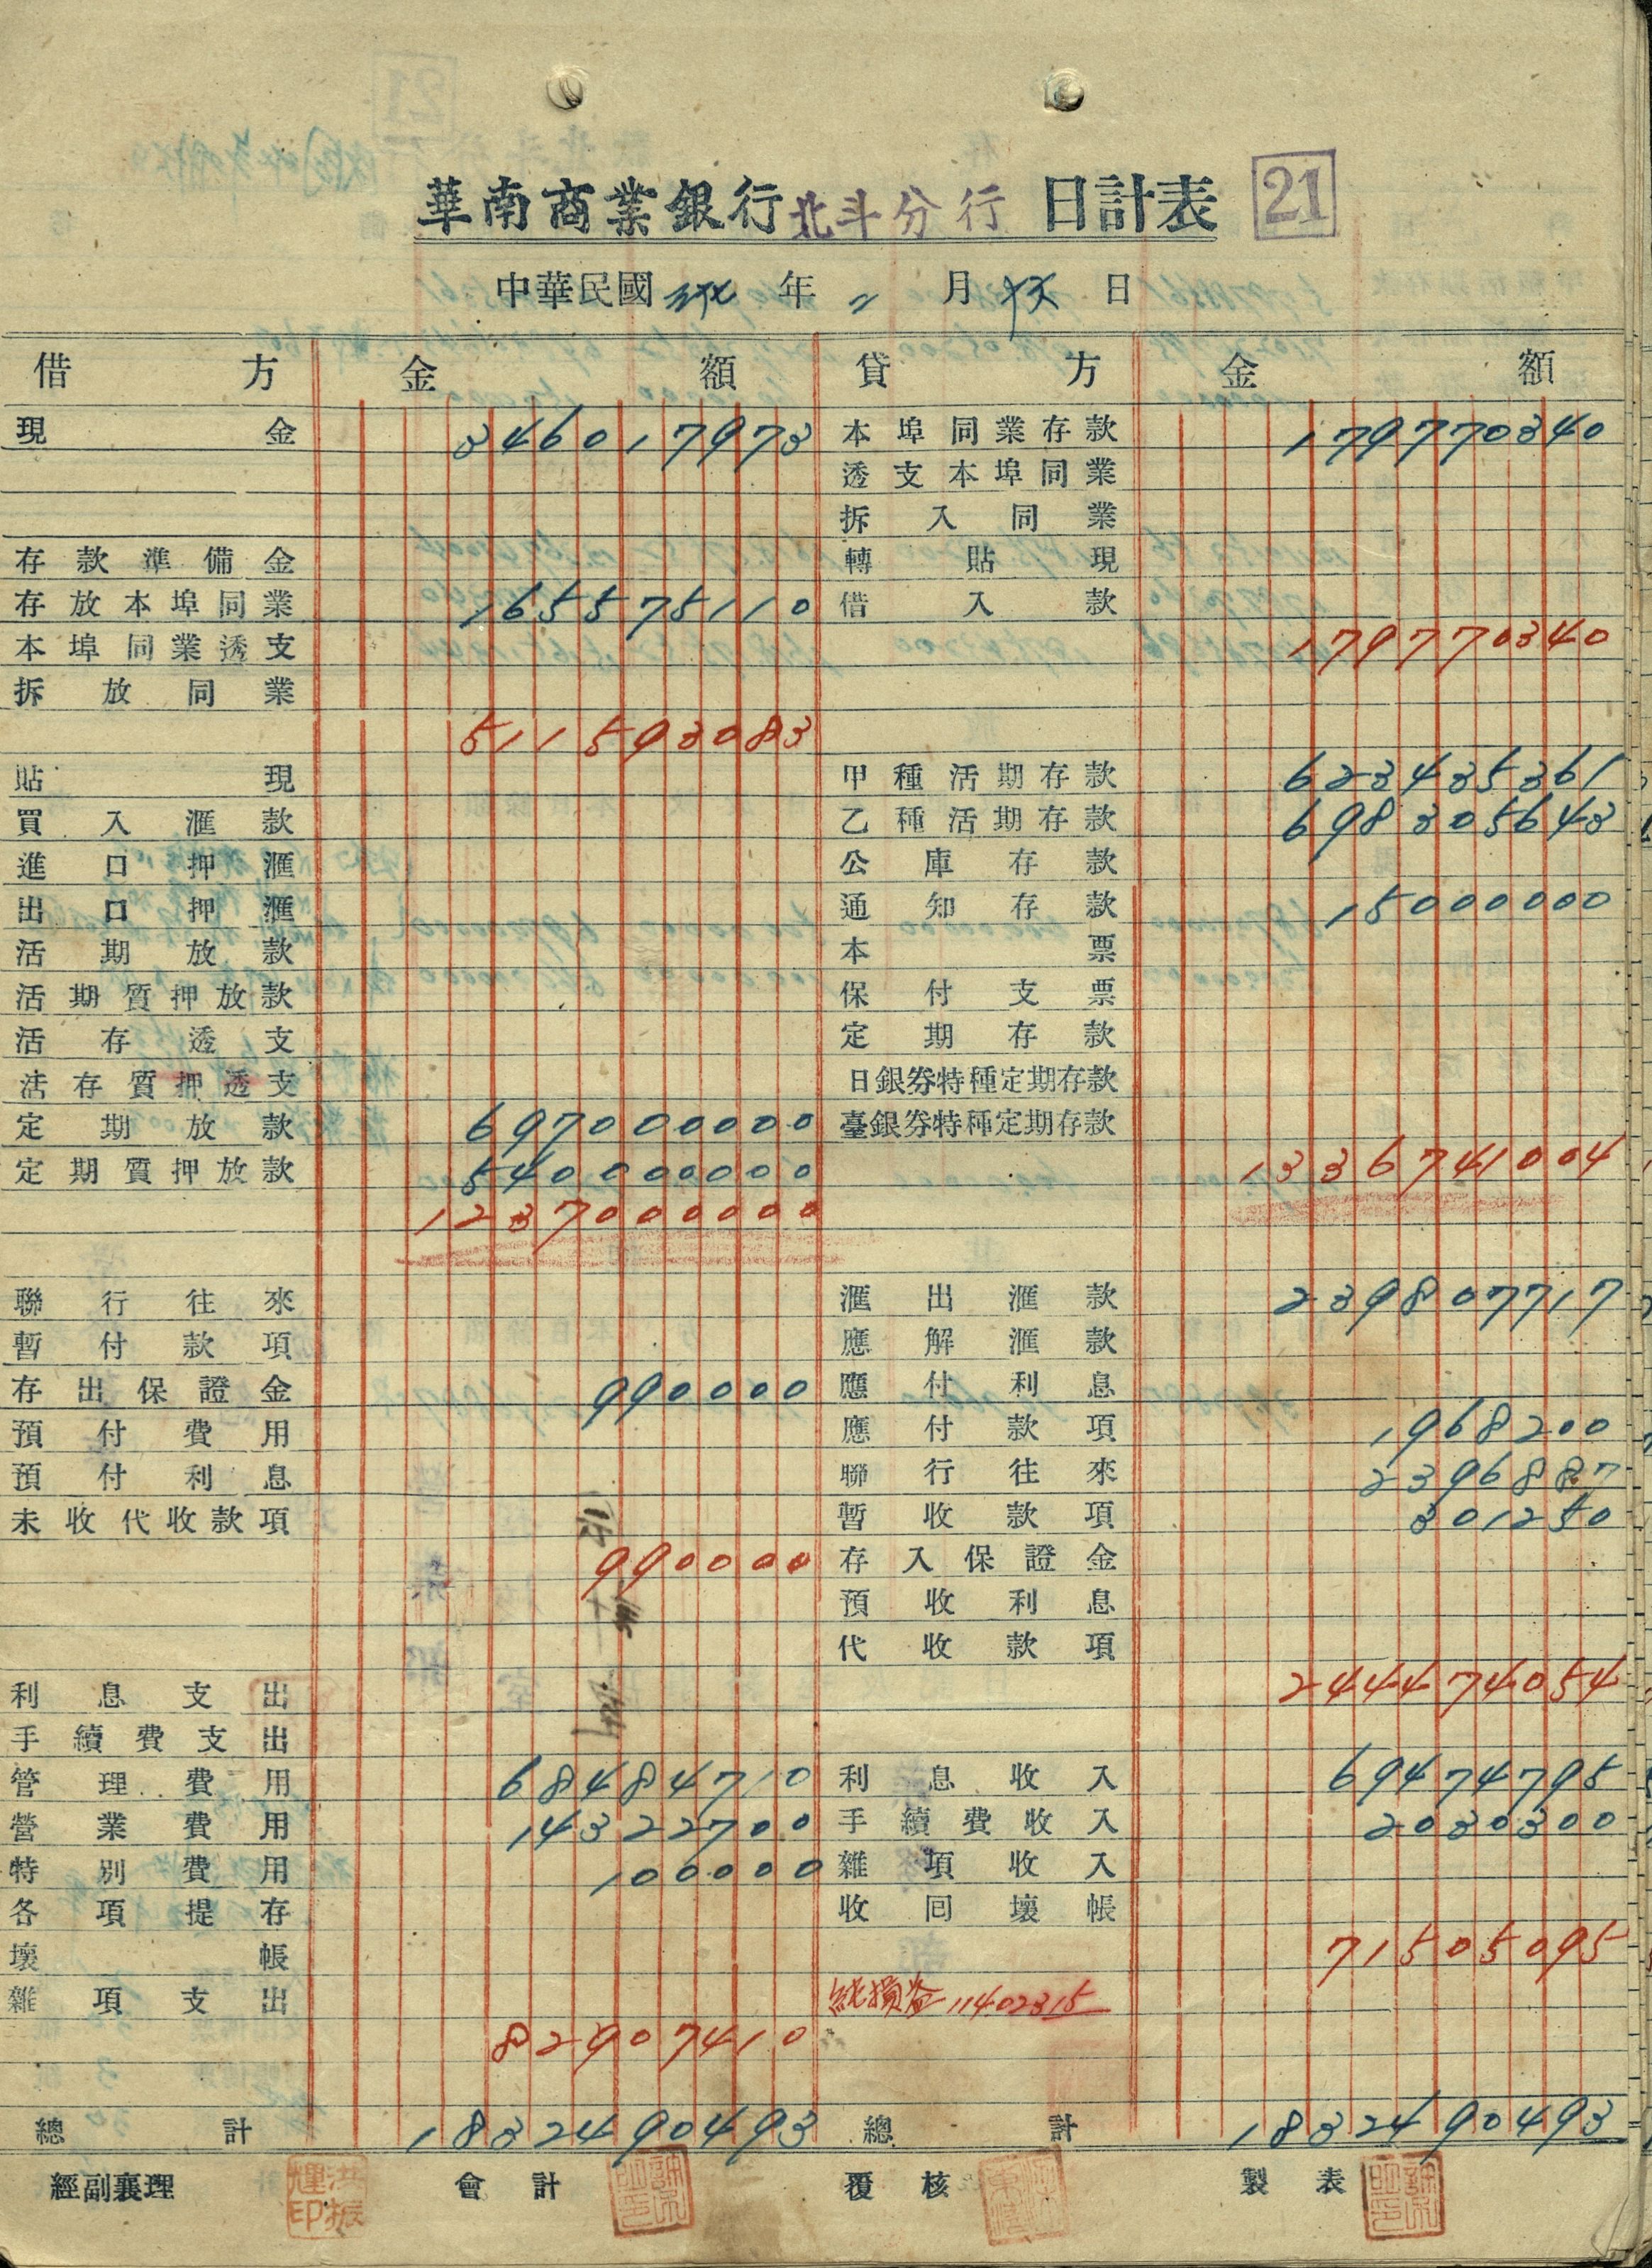 華南商業銀行北斗分行 日計表 21
中華民國 年 月 日
借方 金額 貸方 金額
現金 346017973 本埠同業存款 179770340
透支本埠同業
拆入同業
存款準備金 轉貼現
存放本埠同業 165575110 借入款
本埠同業透支 179770340
拆放同業
511593083
貼現 甲種活期存款 623435361
買入滙款 乙種活期存款 698305643
進口押滙 公庫存款
出口押滙 通知存款 15000000
活期放款 本票
活期質押放款 保付支票
活存透支 定期存款
活存質押透支 日銀券特種定期存款
定期放款 697000000 臺銀券特種定期存款
定期質押放款 540000000 1336741004
1237000000
聯行往來 滙出滙款 239807717
暫付款項 應解滙款
存出保證金 990000 應付利息
預付費用 應付款項 1968200
預付利息 聯行往來 2396887
未收代收款項 暫收款項 301250
990000 存入保證金
預收利息
代收款項
利息支出 244474054
手續費支出
管理費用 68484710 利息收入 69474795
營業費用 14322700 手續費收入 2030300
特別費用 100000 雜項收入
各項提存 收回壞帳
壞帳 71505095
雜項支出 純損益 11402315
82907410
總計 1832490493 總計 1832490493
經副襄理 會計 覆核 製表